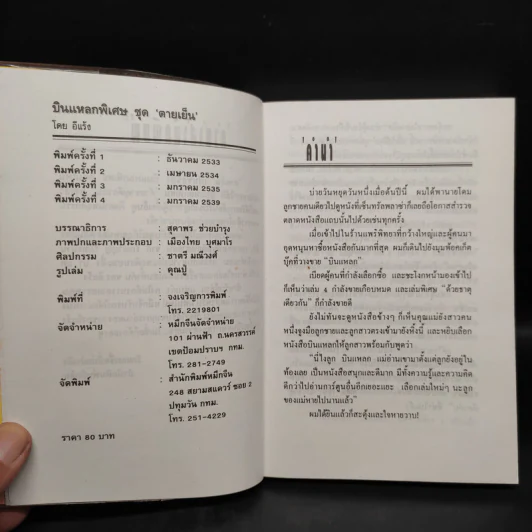 บินแหลกพิเศษ ชุด 'ตายเย็น'
โดย อีแร้ง
พิมพ์ครั้งที่ 1 : ธันวาคม 2533
พิมพ์ครั้งที่ 2 : เมษายน 2534
พิมพ์ครั้งที่ 3 : มกราคม 2535
พิมพ์ครั้งที่ 4 : มกราคม 2539
บรรณาธิการ : สุดาพร ช่วยบำรุง
ภาพปกและภาพประกอบ : เมืองไทย บุศมาโร
ศิลปกรรม : ชาตรี มณีวงศ์
รูปเล่ม : คุณปู่
พิมพ์ที่ : จงเจริญการพิมพ์
โทร. 2219801
จัดจำหน่าย : หมึกจีนจัดจำหน่าย
101 ผ่านฟ้า ถ.นครสวรรค์
เขตป้อมปราบฯ กทม.
โทร. 281-2749
จัดพิมพ์ : สำนักพิมพ์หมึกจีน
248 สยามสแควร์ ซอย 2
ปทุมวัน กทม.
โทร. 251-4229
ราคา 80 บาท
คำนำ
บ่ายวันหยุดวันหนึ่งเมื่อต้นปีนี้ ผมได้พานายโดม
ลูกชายคนเดียวไปดูหนังที่เซ็นทรัลพลาซ่าก็เลยถือโอกาสสำรวจ
ตลาดหนังสือแถบนั้นไปด้วยเช่นทุกครั้ง
เมื่อเข้าไปในร้านแพร่พิทยาที่กว้างใหญ่และผู้คนมา
อุดหนุนหาซื้อหนังสือกันมากที่สุด ผมก็เดินไปยังมุมพ็อคเก็ต
บุ๊คที่วางขาย "บินแหลก"
เบียดผู้คนที่กำลังเลือกซื้อ และชะโงกหน้ามองเข้าไป
ก็เห็นว่าเล่ม 4 กำลังขายเกือบหมด และเล่มพิเศษ "ด้วยธาตุ
เดียวกัน" ก็กำลังขายดี
ยังไม่ทันจะดูหนังสือข้างๆ ก็เห็นคุณแม่ยังสาวคน
หนึ่งจูงมือลูกชายและลูกสาวตรงเข้ามายังที่นี้ และหยิบเลือก
หนังสือบินแหลกให้ลูกสาวพร้อมกับพูดว่า
"นี่ไงลูก บินแหลก แม่อ่านเขามาตั้งแต่ลูกยังอยู่ใน
ท้องเลย เป็นหนังสือสนุกและดีมาก มีทั้งความรู้และความคิด
ดีกว่าไปอ่านการ์ตูนอื่นอีกเยอะแยะ เลือกเล่มใหม่ๆ นะลูก
ของแม่หายไปนานแล้ว"
ผมได้ยินแล้วก็สะดุ้งและใจหายวาบ!